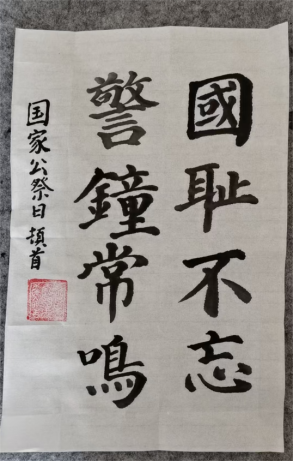 國耻不忘
警鐘常鳴
国家公祭日 頓首